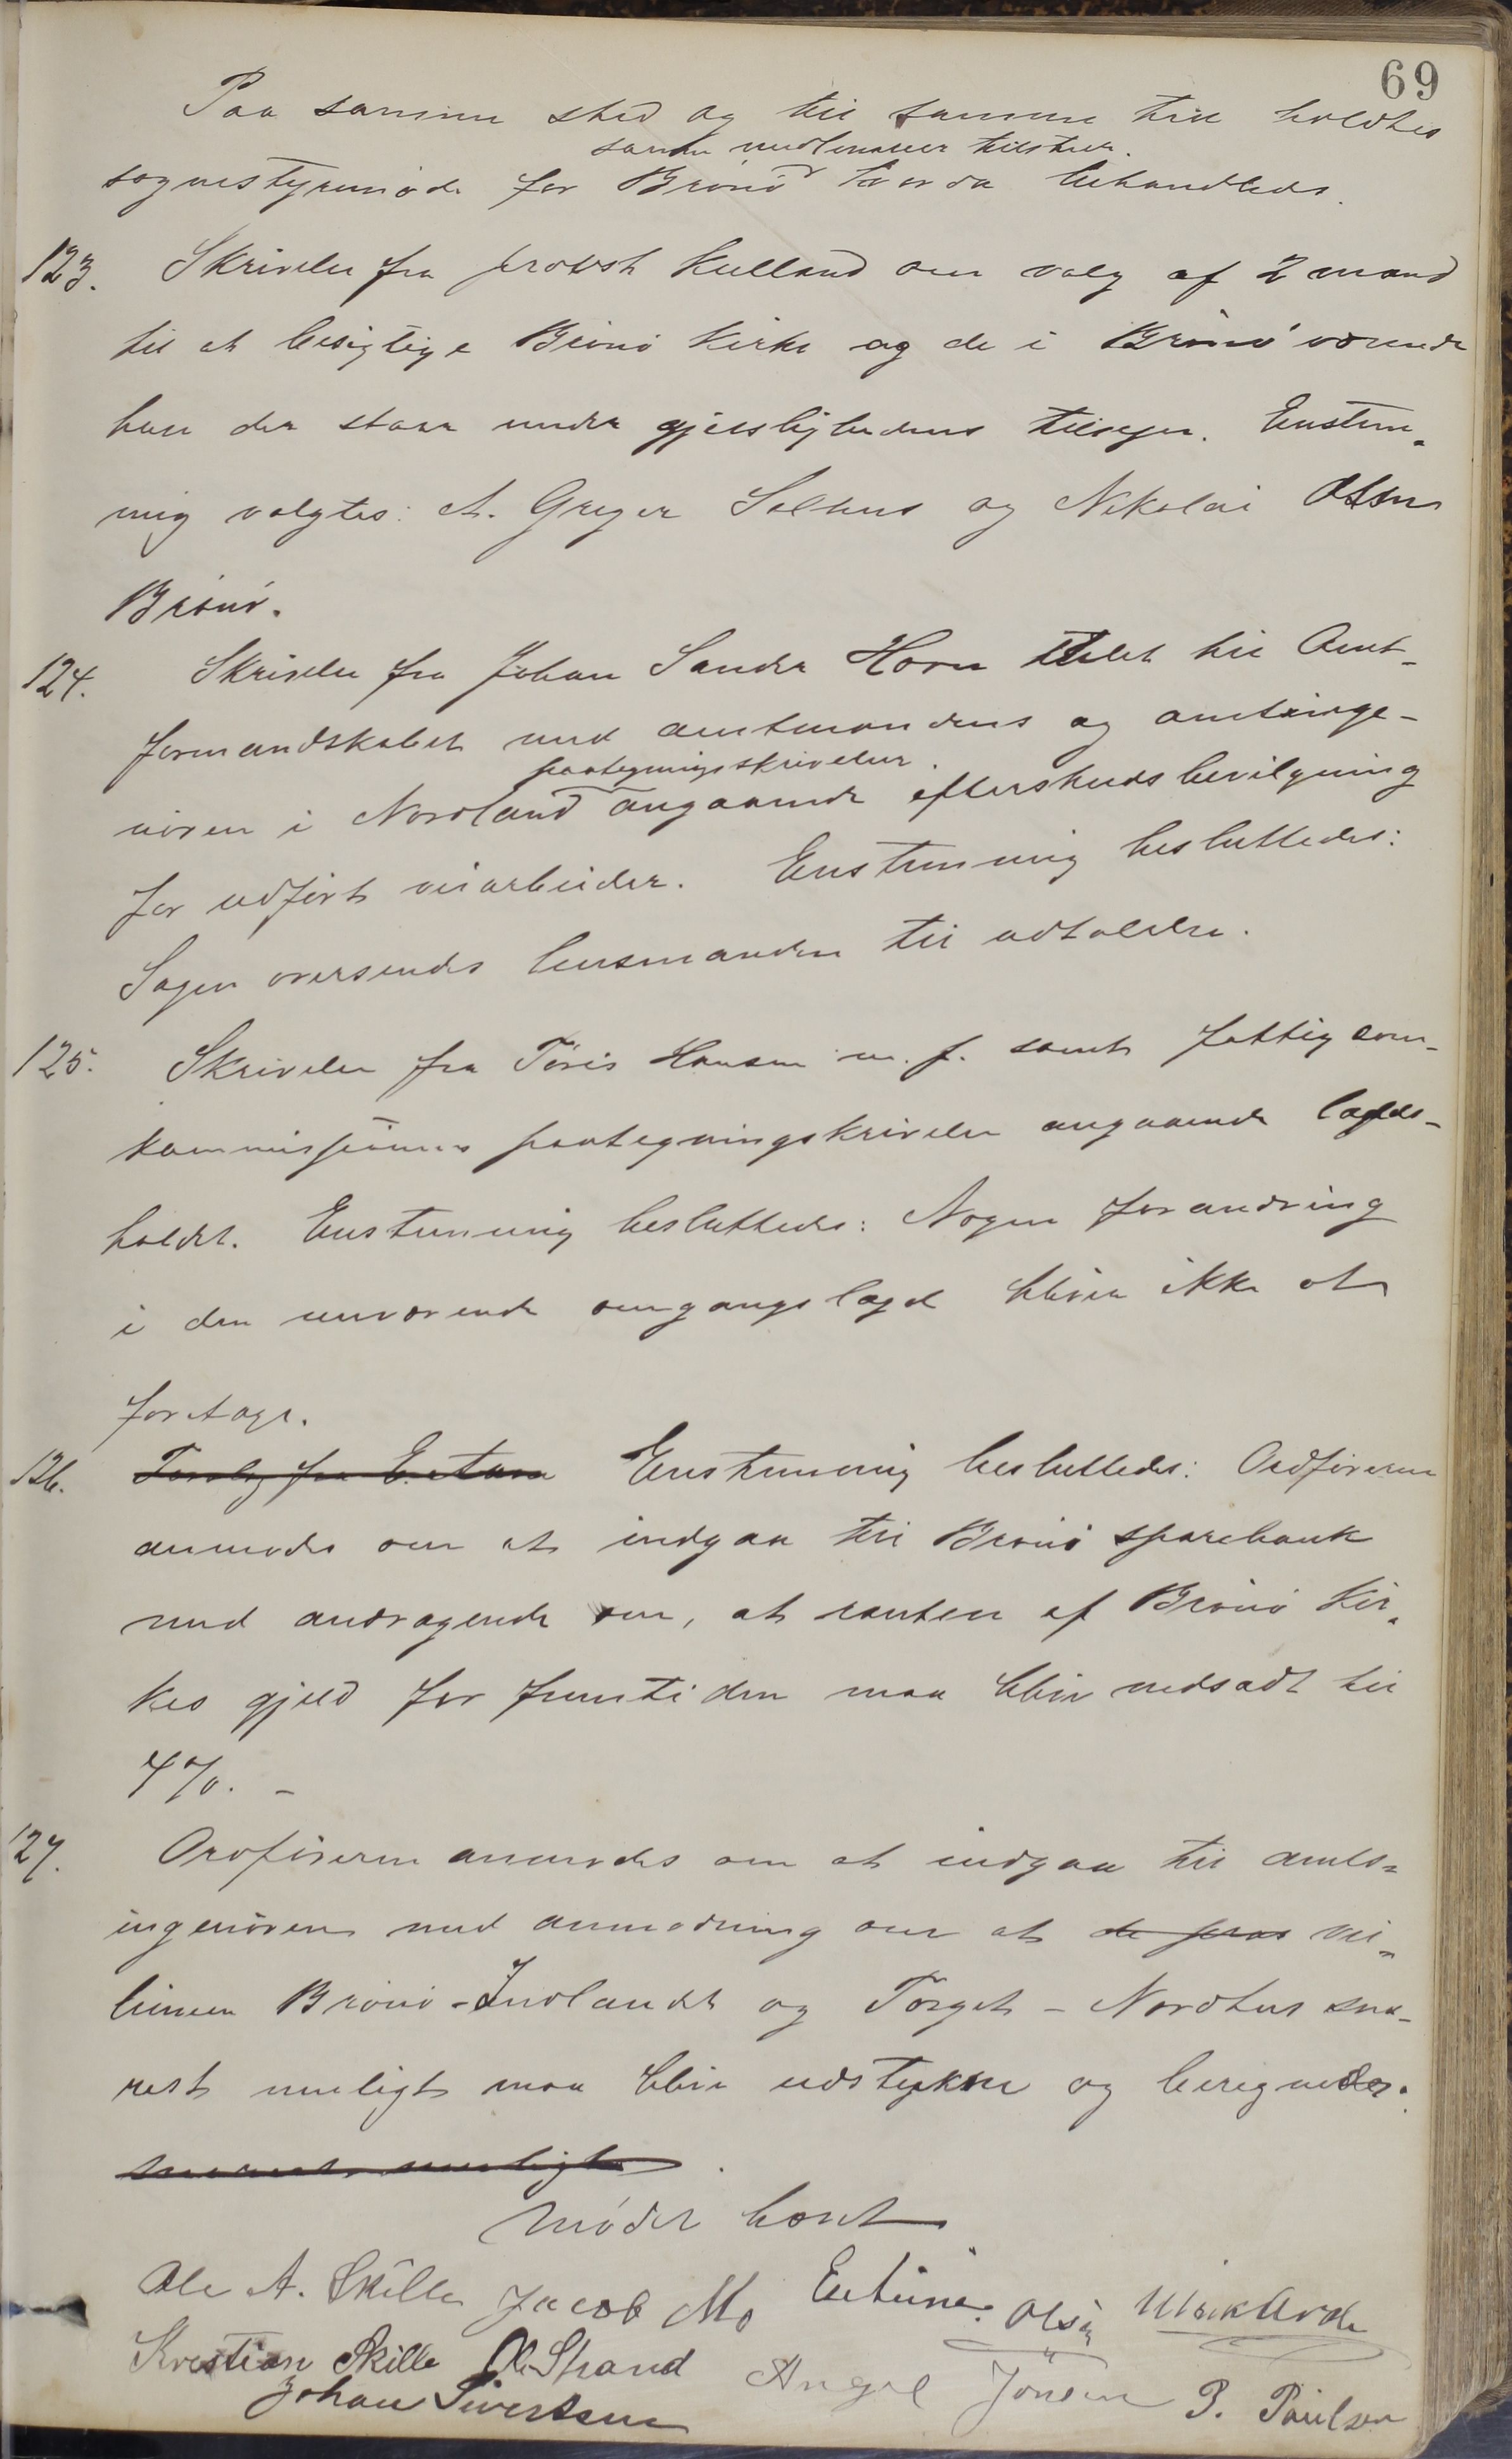 69
Paa samme sted og til samme tid holdtes
samtlige medlemmer tilstede.
sognestyremøde for Brønø hvorda behandledes.
123. Skrivelse fra provst Kulland om valg af 2 mand
til at besigtige Brønø kirke og de i Brønø værende
huse der staar under gjeistlighedens tilsyn. Enstem-
mig valgtes: A. Greger Salhus og Nikolai Olsen
Brønø.
124. Skrivelse fra Johan Sander Horn stilet til Amt-
formandskabet med amtmandens og amtsinge-
paategningsskrivelser.
niøren i Nordland angaaende efterskudsbevilgning
for udførte veiarbeider. Enstemmig besluttedes:
Sagen oversendes lensmanden til udtalelse.
125. Skrivelse fra Tøris Hansen m. f. samt fattig com-
kommissionens paategningskrivelse angaaende lægds-
holdet. Enstemmig besluttedes: Nogen forandring
i den nuværende omgangslægd bliver ikke at
foretage.
126. Enstemmig besluttedes: Ordføreren
anmodes om at indgaa til Brønø sparebank
med andragende om, at renten af Brønø kir-
kes gjeld for fremtiden maa blive nedsadt til
4 %. -
127. Ordføreren anmodes om at indgaa til amts-
ingeniøren med anmodning om at de vei-
linien Brønø - Indlandet og Torget - Nordhus sna-
rest muligt maa blive udstykne og beregnede.
snarest muligt
Mødet hævet
Ole A. Skille Jacob Mo Olsen Ulrik
Kristian Skille Ole Strand Angel Jönsen P. Paulsen
Johan Sivertsen